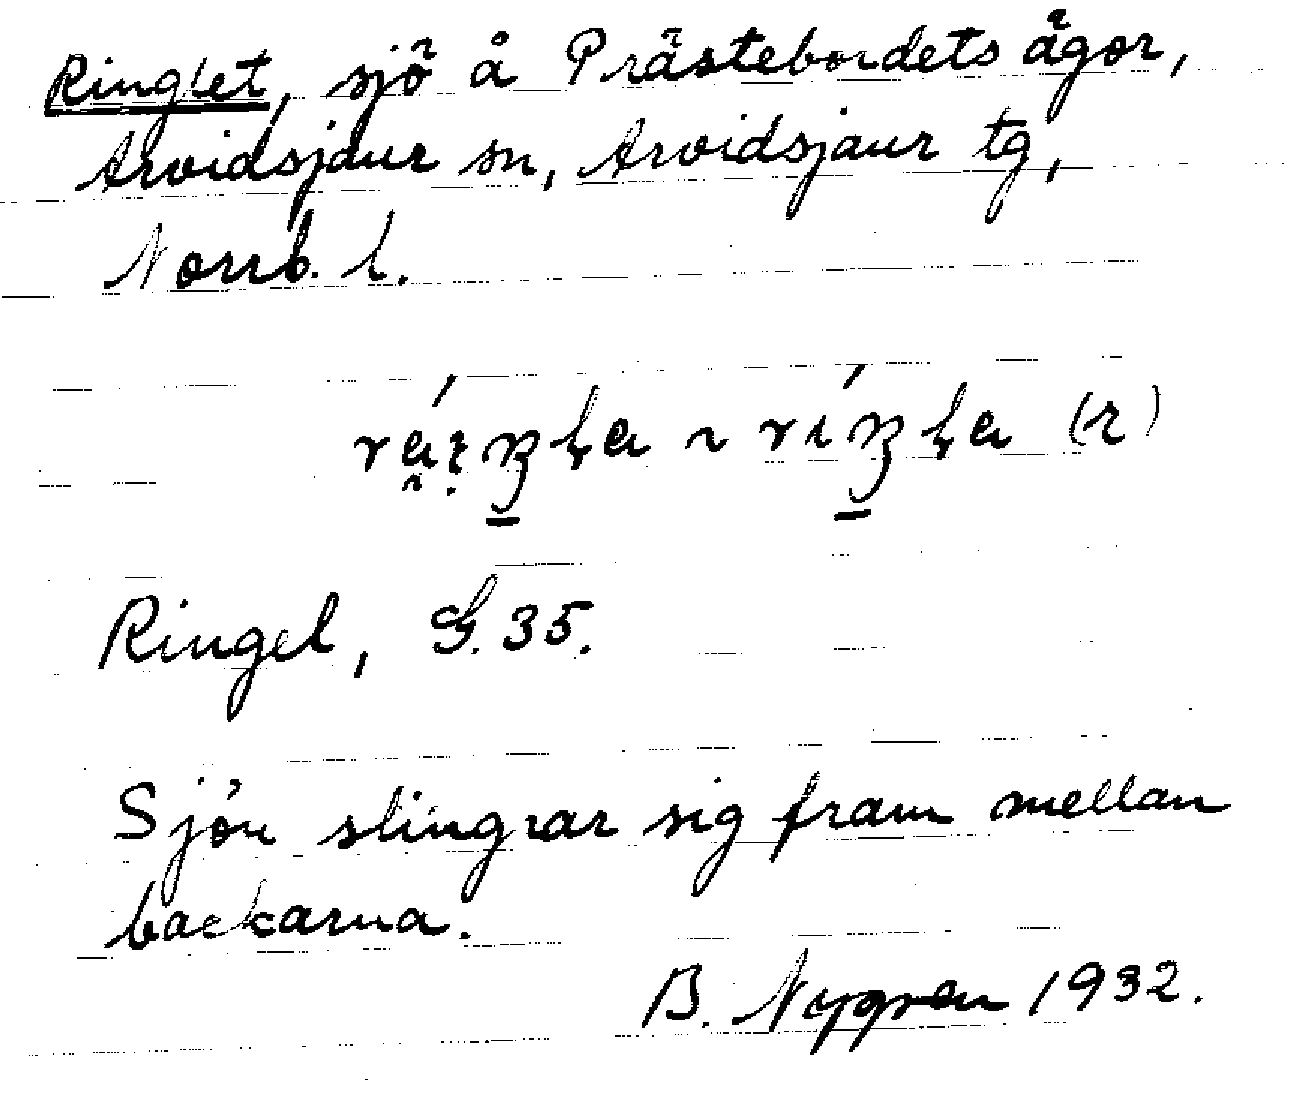 Ringlet, sjö å Prästebordets ägor,
Arvidsjaur sn, Arvidsjaur tg,
Norrb. l.
(2)
Ringel, G. 35.
Sjön slingrar sig fram mellan
backarna.
B. Nygren 1932.